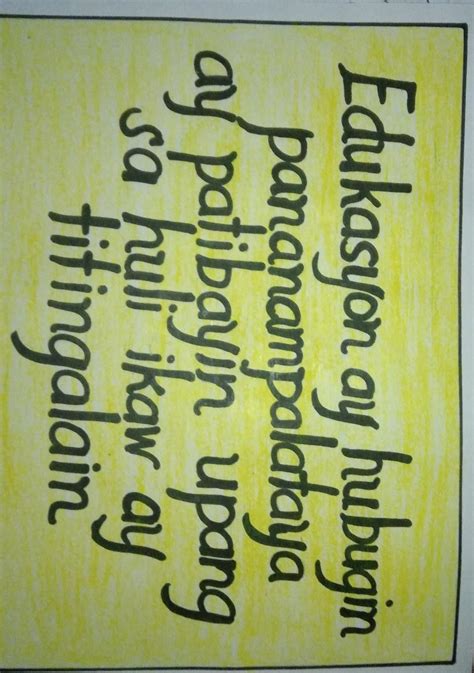 Edukasyon ay hubugin
pananampalataya
ay patibayin upang
sa huli ikaw ay
titingalain